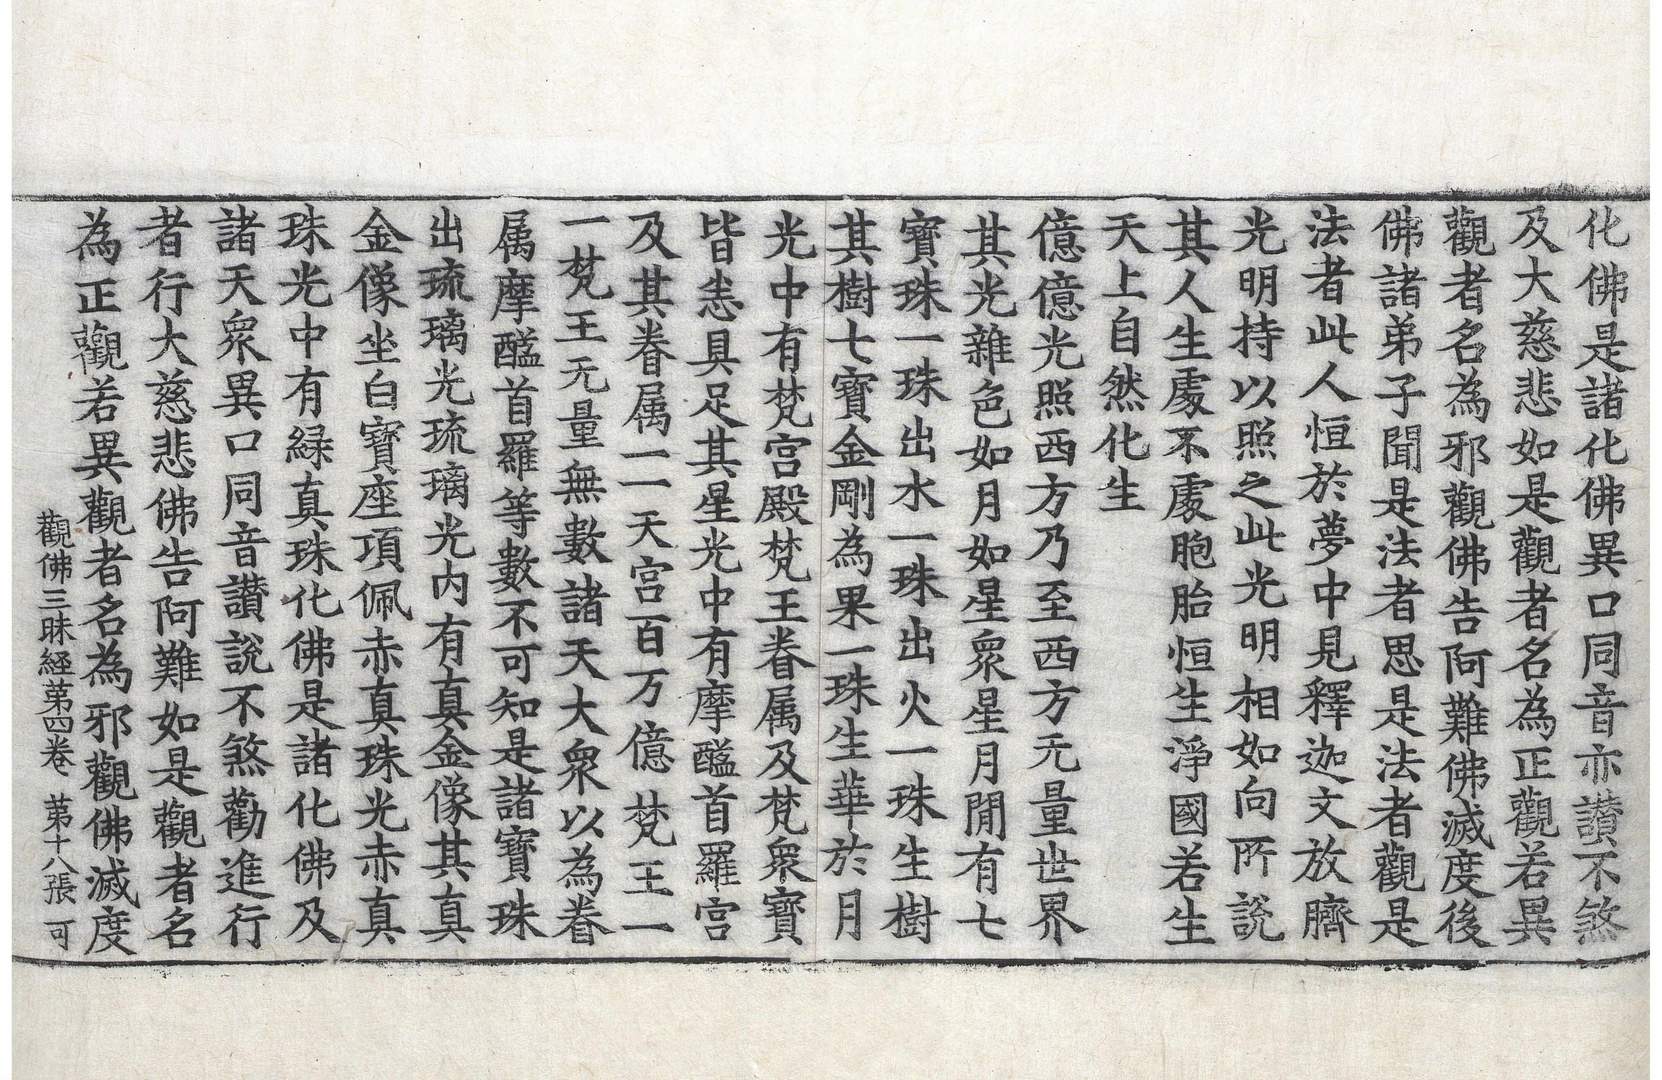 化佛是諸化佛異口同音亦讃不煞
及大慈悲如是觀者名為正觀若異
觀者名為邪觀佛告阿難佛滅度後
佛諸弟子聞是法者思是法者觀是
法者此人恒於夢中見釋迦文放臍
光明持以照之此光明相如向所說
其人生處不處胞胎恒生淨國若生
天上自然化生
億億光照西方乃至西方无量世界
其光雜色如月如星衆星月閒有七
寶珠一珠出水一珠出火一珠生樹
其樹七寶金剛為果一珠生華於月
光中有梵宫殿梵王眷属及梵衆寶
皆悉具足其星光中有摩醯首羅宫
及其眷属一一天宫百万億梵王一
一梵王无量無數諸天大衆以為眷
属摩醯首羅等數不可知是諸寶珠
出琉璃光琉璃光内有真金像其真
金像坐白寶座項佩赤真珠光赤真
珠光中有緑真珠化佛是諸化佛及
諸天衆異口同音讃說不煞勸進行
者行大慈悲佛告阿難如是觀者名
為正觀若異觀者名為邪觀佛滅度
觀佛三昧経第四卷 第十八張 可